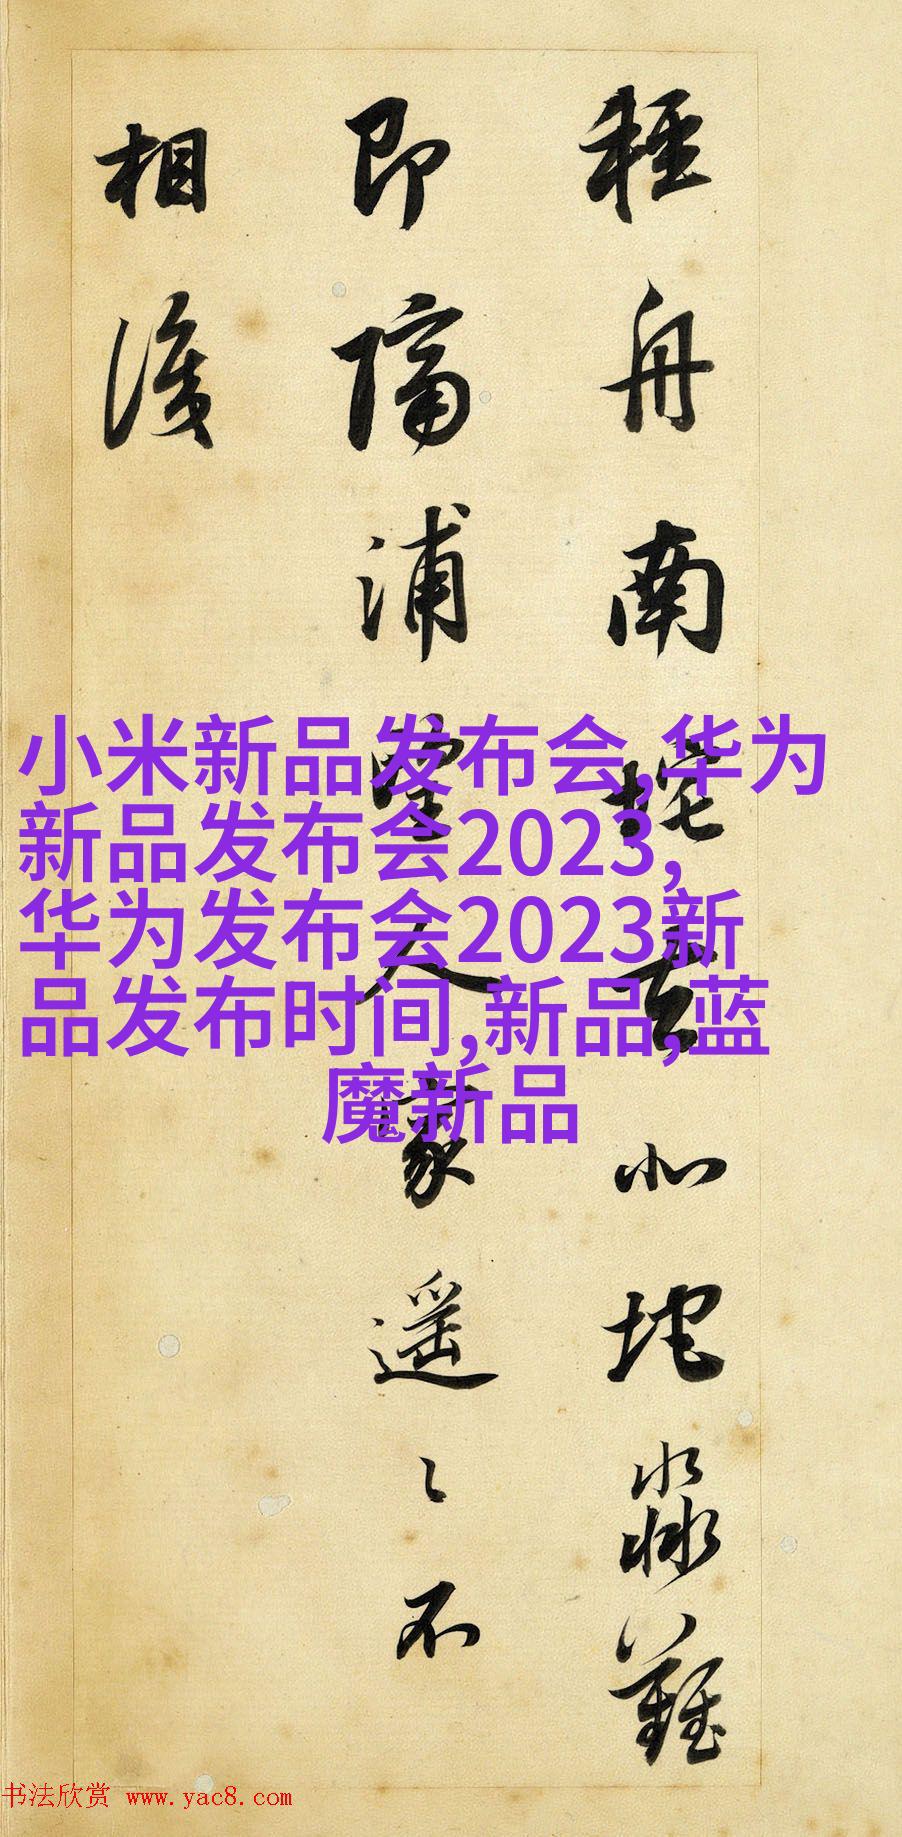 軽舟南垞去北垞淼難
即隔浦望人家遥〻不
相識
小米新品发布会,华为
新品发布会2023,
华为发布会2023新
品发布时间,新品,蓝
魔新品
书法欣赏 www.yac8.com